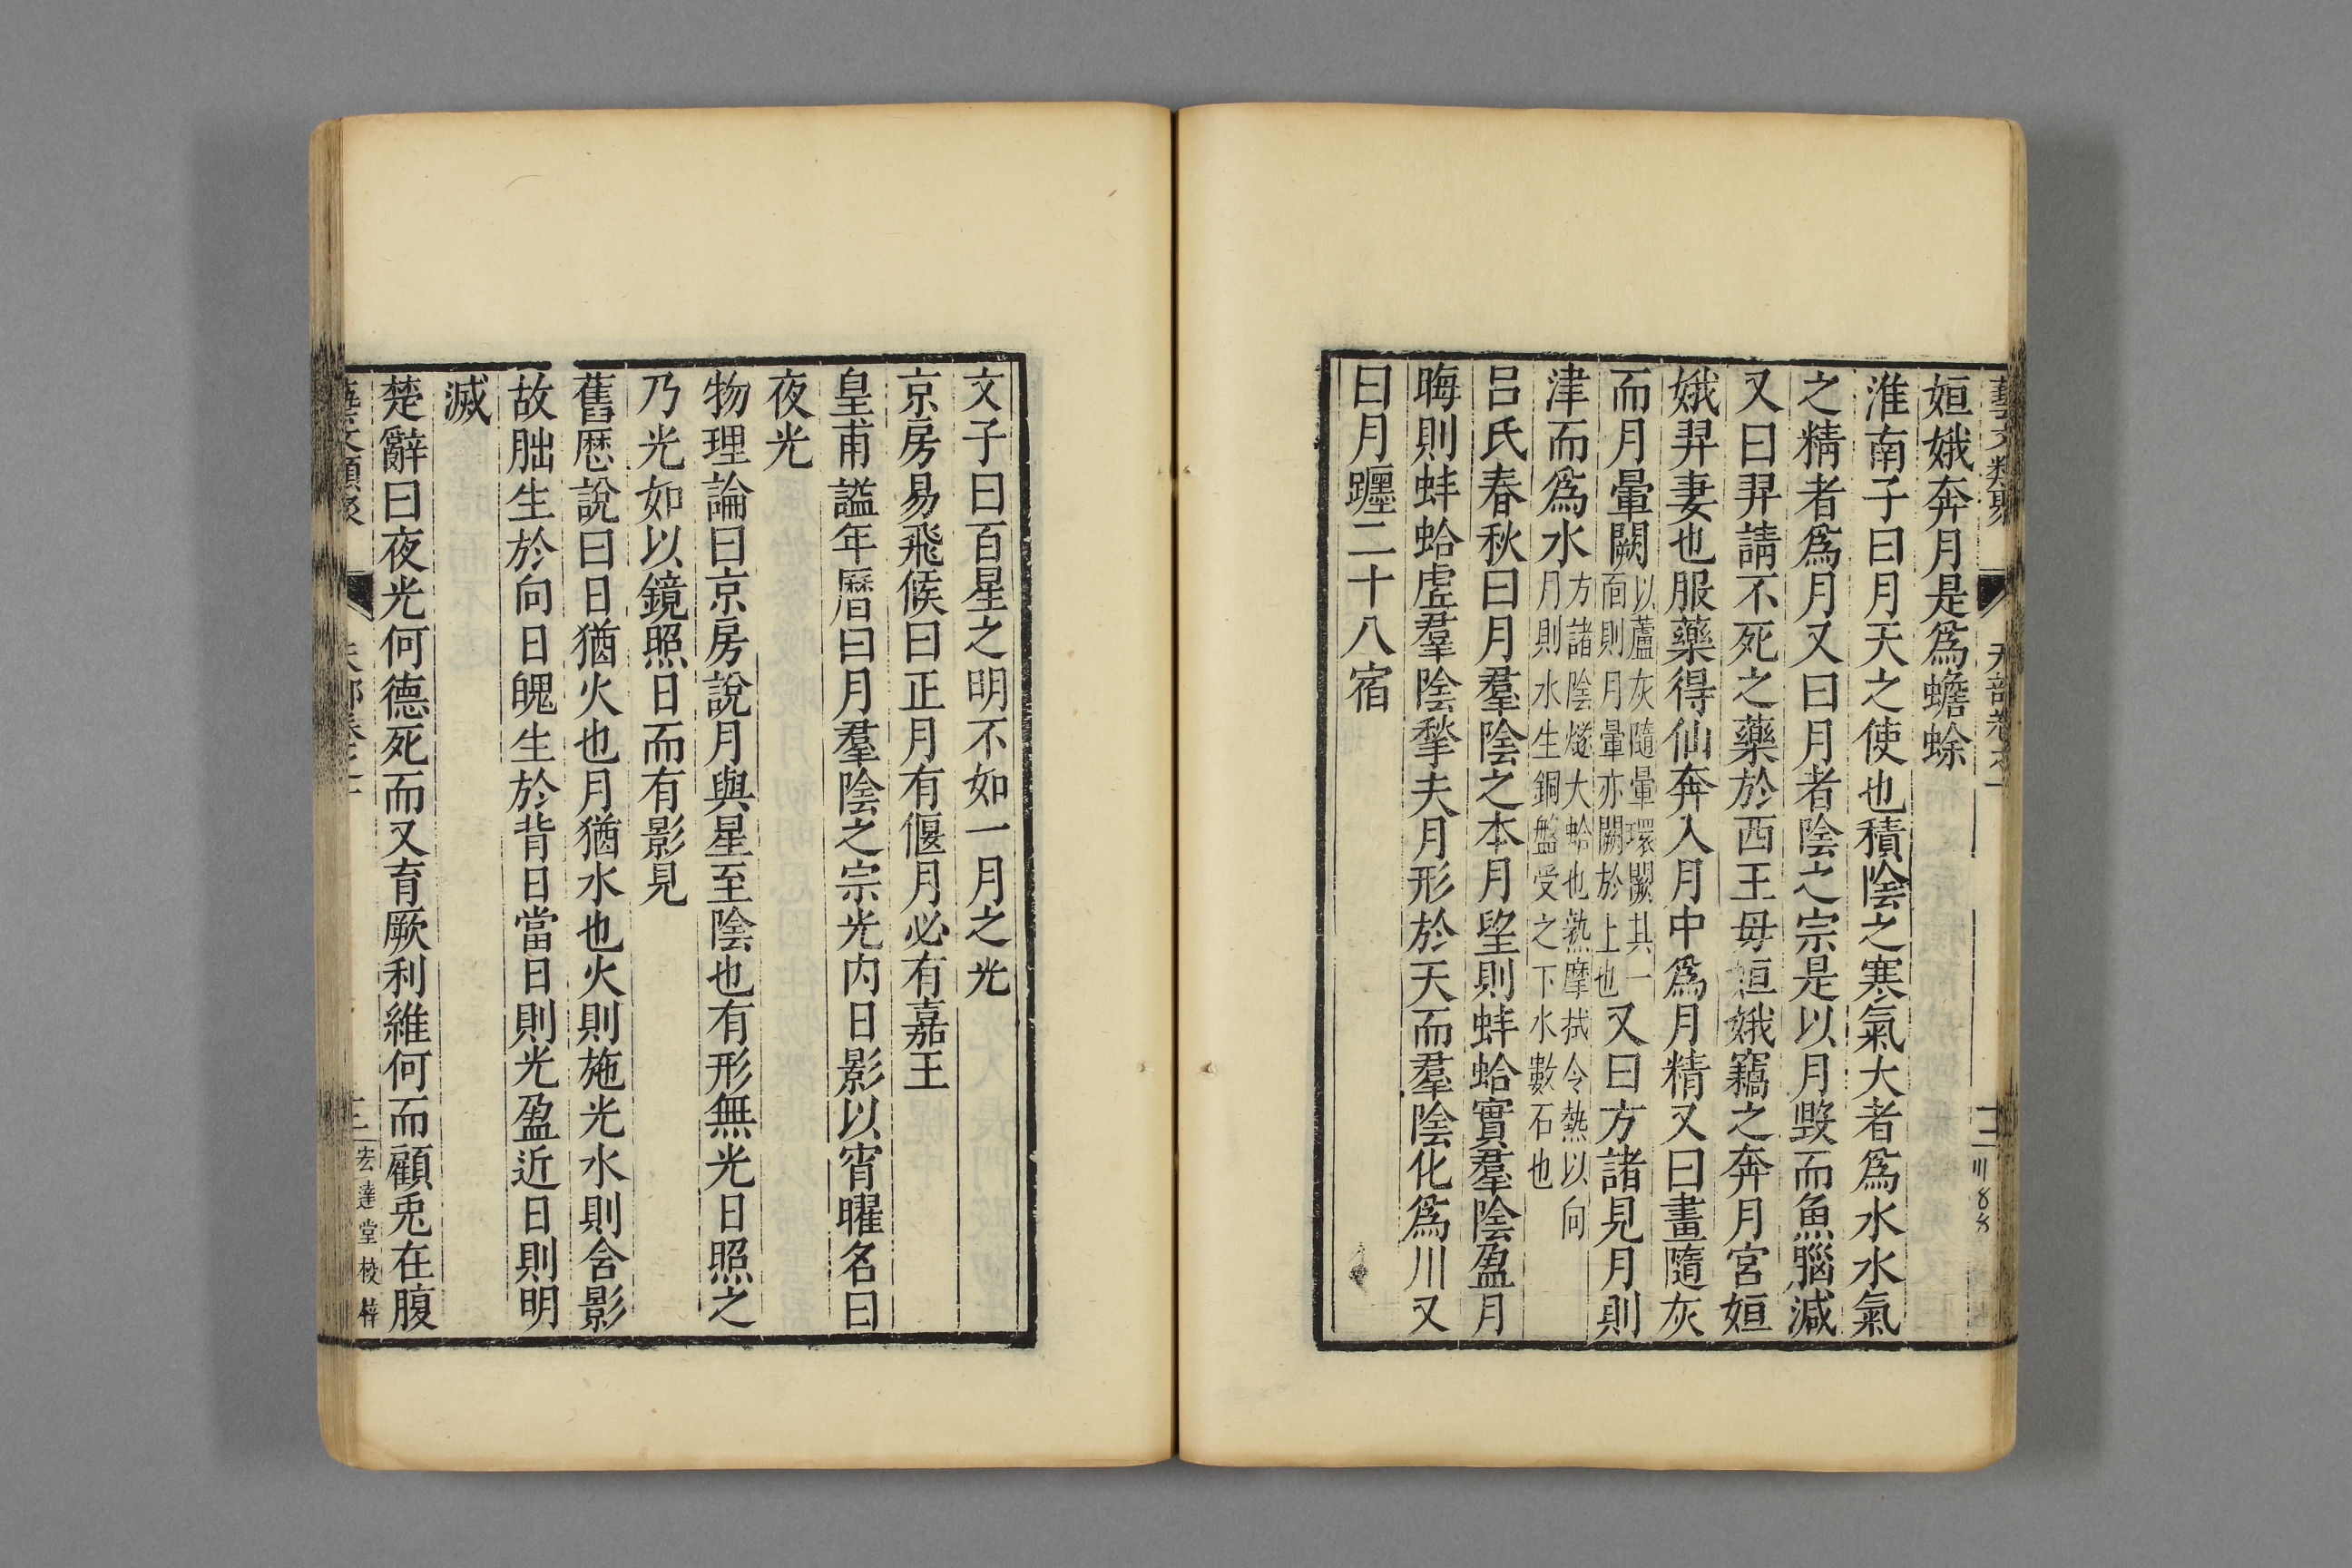 姮娥奔月是爲蟾蜍
淮南子曰月天之使也積陰之寒氣大者爲水水氣
之精者爲月又曰月者陰之宗是以月毀而魚腦減
又曰羿請不死之藥於西王母姮娥竊之奔月宮姮
娥羿妻也服藥得仙奔入月中爲月精又曰畫隨灰
而月暈闕以蘆灰隨暈環闕其一面則月暈亦闕於上也又曰方諸見月則
津而爲水方諸陰燧大蛤也熱摩拭令熱以向月則水生銅盤受之下水數石也
呂氏春秋曰月羣陰之本月望則蚌蛤實羣陰盈月
晦則蚌蛤虛羣陰揫夫月形於天而羣陰化爲川又
曰月躔二十八宿
文子曰百星之明不如一月之光
京房易飛候曰正月有偃月必有嘉王
皇甫謐年曆曰月羣陰之宗光内日影以宵曜名曰
夜光
物理論曰京房說月與星至陰也有形無光日照之
乃光如以鏡照日而有影見
舊厯說曰日猶火也月猶水也火則施光水則含影
故朏生於向日魄生於背日當日則光盈近日則明
滅
楚辭曰夜光何德死而又育厥利維何而顧兎在腹
藝文類聚 天部卷之一 三 宏達堂校梓